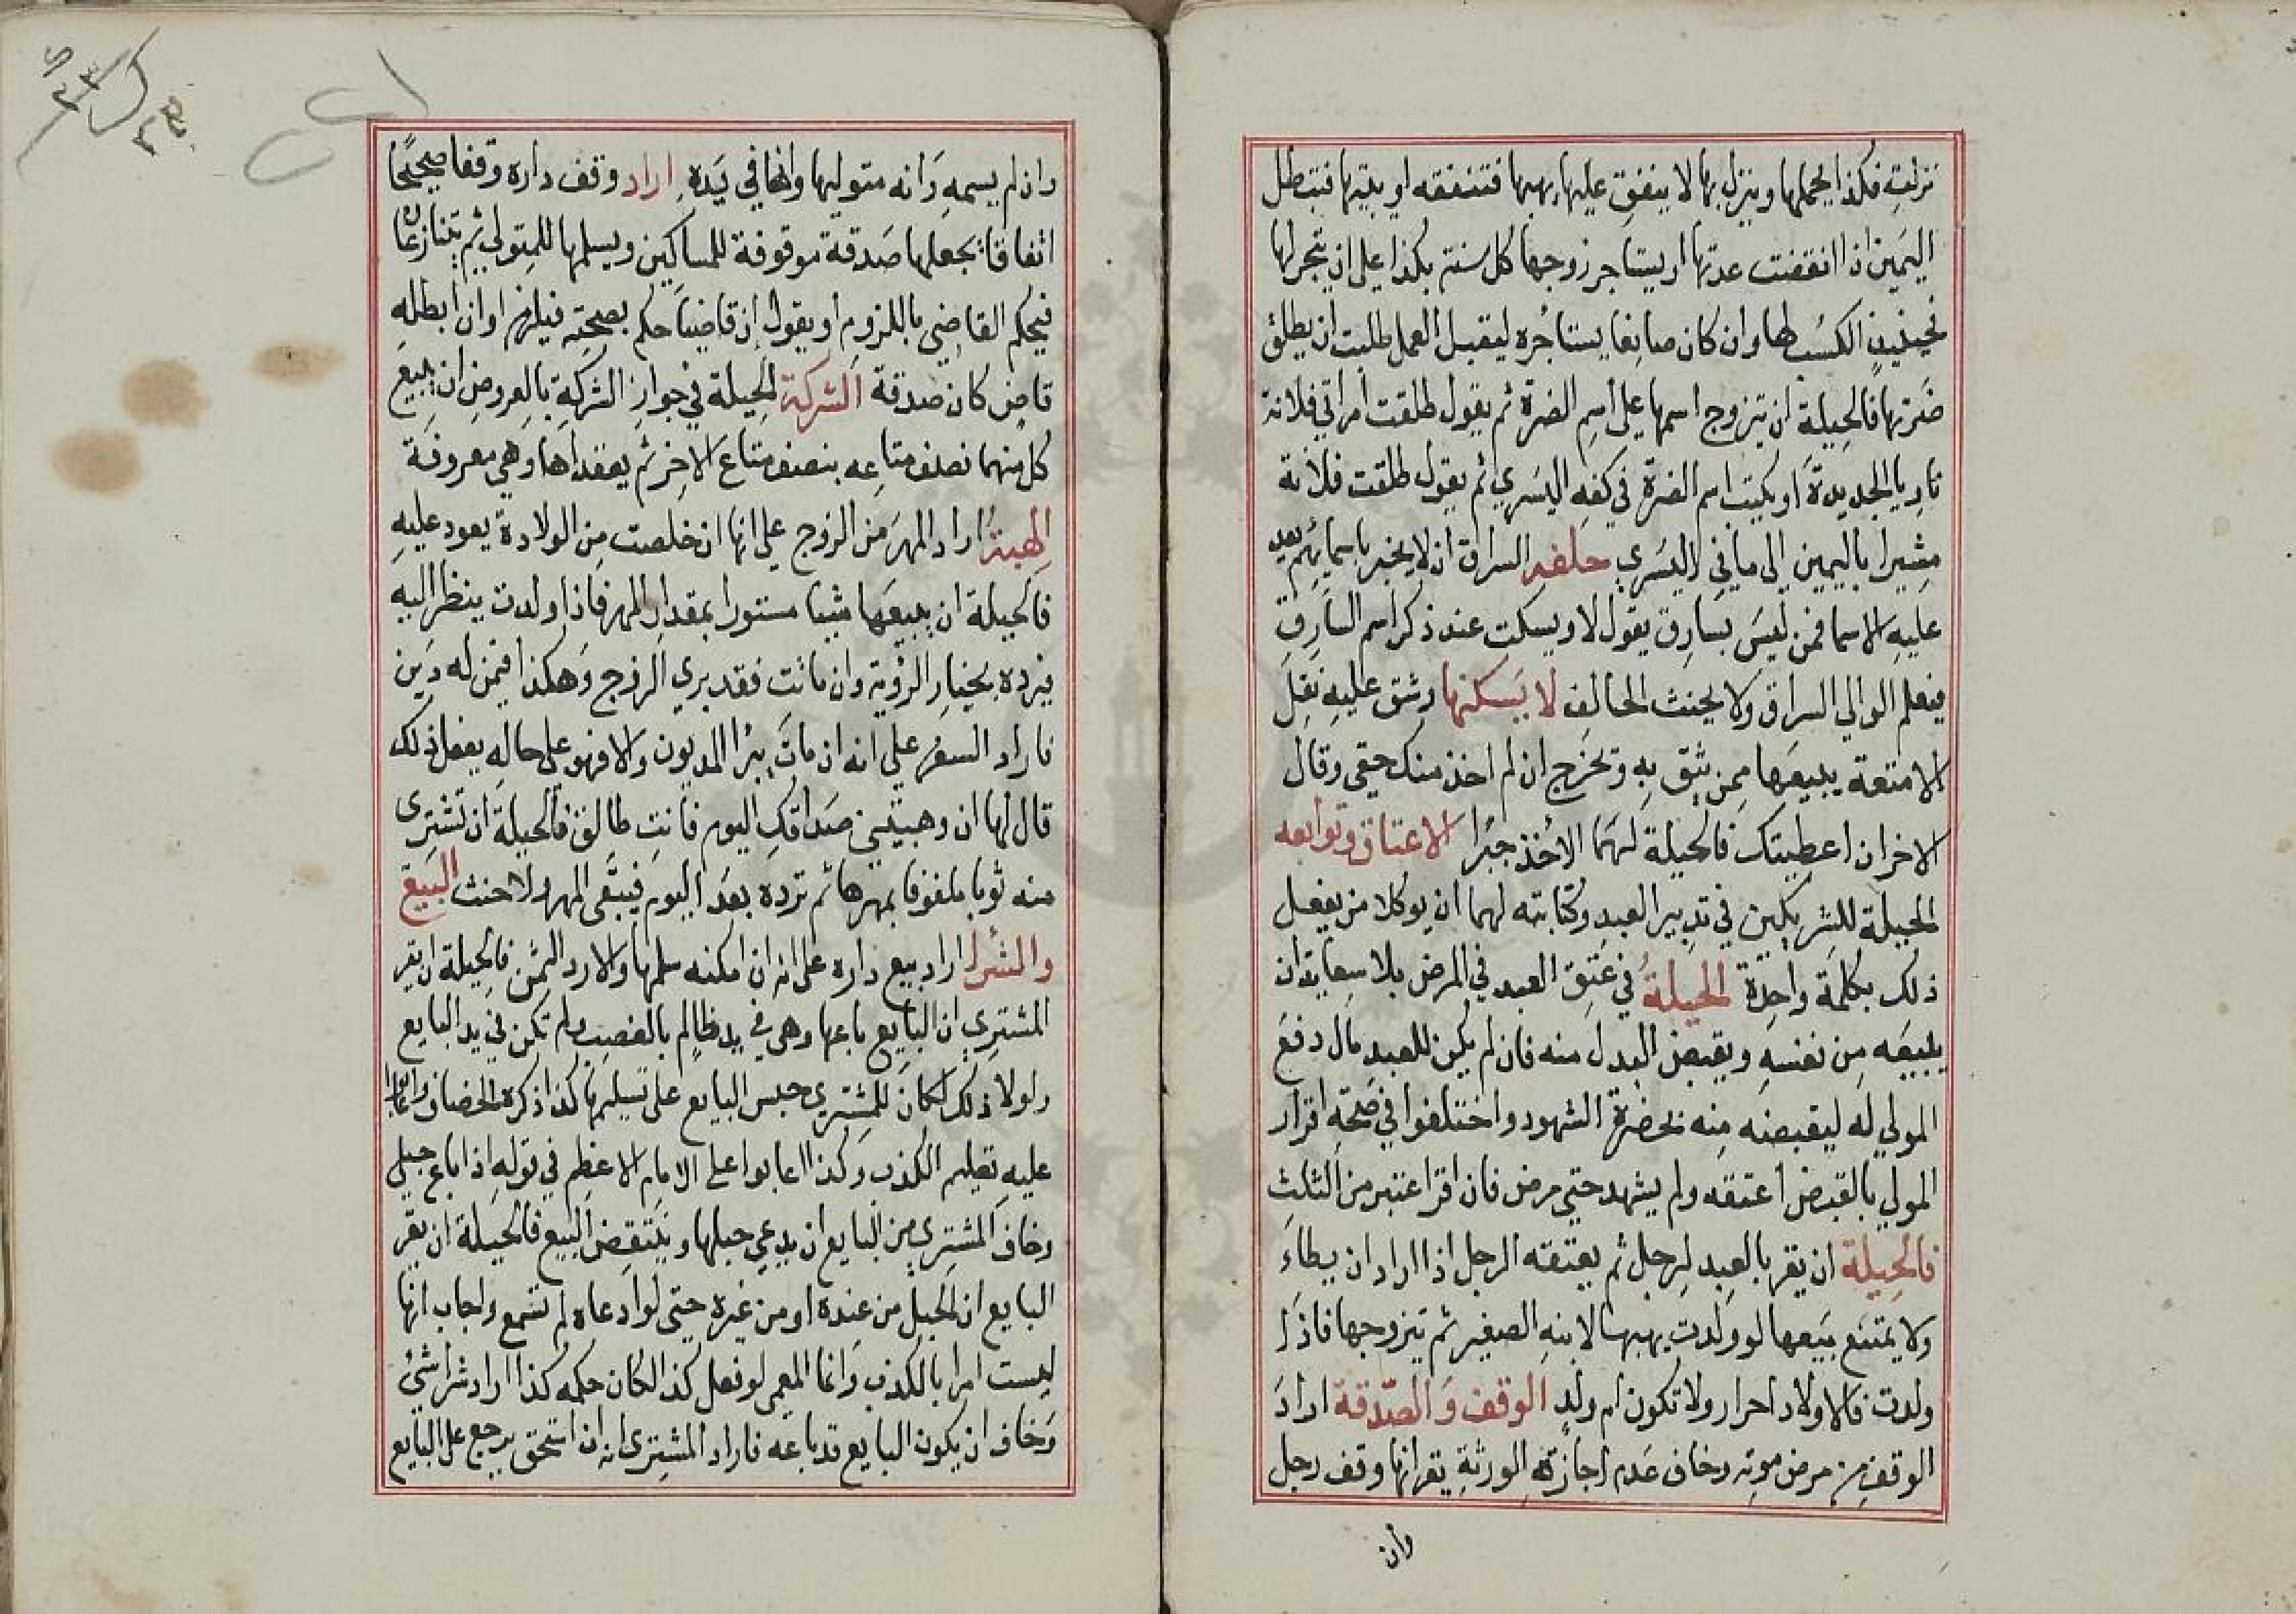 نزلت فكذا يحملها وينزل بها لا ينفق عليها يهبها فتنفقه او يبيعها فتبطل
اليمين اذا انقضت عدتها او يستاجر زوجها كل سنة بكذا على ان يتجر لها
فحينئذ الكسب لها وان كان صانعا يستاجره ليتقبل العمل طلبت ان يطلق
ضرتها فالحيلة ان يتزوج اسمها على اسم الضرة ثم يقول طلقت امراتي فلانة
ناويا الجديدة او يكتب اسم الضرة في كفه اليسري ثم يقول طلقت فلانة
مشيرا باليمين الى ما في اليسري حلفه السراق ان لا يخبر باسمايهم يعد
عليه الاسما فمن ليس بسارق يقول لا ويسكت عند ذكر اسم السارق
فيعلم الوالي السراق ولا يحنث الحالف لا يسكنها وشق عليه نقل
الامتعة يبيعها ممن يثق به وتخرج ان لم اخذ منك حقي وقال
الاخر ان اعطيتك فالحيلة لهما الاخذ جبرا الاعتاق وتوابعه
الحيلة للشريكين في تدبير العبد وكتابته لهما ان يوكلا من يفعل
ذلك بكلمة واحدة الحيلة في عتق العبد في المرض بلا سعاية ان
يبيعه من نفسه ويقبض البدل منه فان لم يكن للعبد مال دفع
المولي له ليقبضه منه بحضرة الشهود واختلفوا في صحة اقرار
المولي بالقبض اعتقه ولم يشهد حتي مرض فان اقر اعتبر من الثلث
فالحيلة ان يقر بالعبد لرجل ثم يعتقه الرجل اذا اراد ان يطاء
ولا يمتنع بيعها لو ولدت يهبها لابنه الصغير ثم يتزوجها فاذا
ولدت فالاولاد احرار ولا تكون ام ولد الوقف والصدقة اراد
الوقف من مرض موته وخاف عدم اجازة الورثة يقر انها وقف رجل
وان
وان لم يسمه وانه متوليها وانها في يده اراد وقف داره وقفا صحيحا
اتفاقا يجعلها صدقة موقوفة للمساكين ويسلمها للمتولي ثم يتنازعان
فيحكم القاضي باللزوم او يقول ان قاضيا حكم بصحته فيلزم او ان ابطله
قاض كان صدقة الشركة الحيلة في جواز الشركة بالعروض ان يبيع
كل منهما نصف متاعه بنصف متاع الاخر ثم يعقداها وهي معروفة
الهبة اراد المهر من الزوج على انها ان خلصت من الولادة يعود عليه
فالحيلة ان يبيعها شيا مستورا بمقدار المهر فاذا ولدت ينظر اليه
فيرده بخيار الرؤية وان ماتت فقد بري الزوج وهكذا فيمن له دين
فاراد السفر علي انه ان مات يبرا المديون والا فهو على حاله يفعل ذلك
قال لها ان وهبتني صداقك اليوم فانت طالق فالحيلة ان تشتري
منه ثوبا ملفوفا بمهرها ثم ترده بعد اليوم فيبقى المهر ولا حنث البيع
والشرا اراد بيع داره على انه ان امكنه سلمها والا رد الثمن فالحيلة ان يقر
المشتري ان البايع باعها وهي في يد ظالم بالغصب ولم تكن في يد البايع
ولولا ذلك لكان للمشتري حبس البايع على تسليمها كذا ذكره الخصاف وعابوا
عليه تعليم الكذب وكذا عابوا على الامام الاعظم في قوله اذا باع حبلي
وخاف المشتري من البايع ان يدعي حبلها وينتقض البيع فالحيلة ان يقر
البايع ان الحبل من عنده او من غيره حتى لو ادعاه لم تسمع واجاب انها
ليست امرا بالكذب وانما المعني لو فعل كذا لكان حكمه كذا اراد شرا شي
وخاف ان يكون البايع قد باعه فاراد المشتري انه ان استحق يرجع على البايع